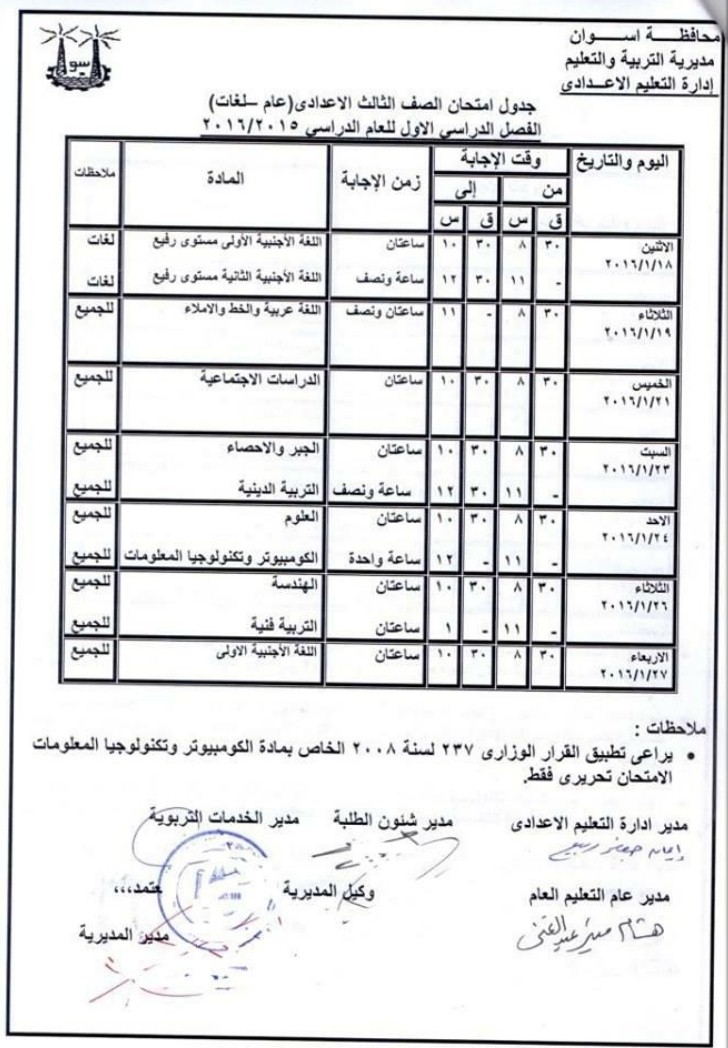 محافظـــــة اســـوان
مديرية التربية والتعليم
إدارة التعليم الاعـــدادى
جدول امتحان الصف الثالث الاعدادى(عام –لغات)
الفصل الدراسي الاول للعام الدراسي ٢٠١٦/٢٠١٥
اليوم والتاريخ | وقت الإجابة | زمن الإجابة | المادة | ملاحظات
من | إلي
ق | س | ق | س
الاثنين ٢٠١٦/١/١٨ | ٣٠ | ٨ | ٣٠ | ١٠ | ساعتان | اللغة الأجنبية الأولى مستوى رفيع | لغات
- | ١١ | ٣٠ | ١٢ | ساعة ونصف | اللغة الأجنبية الثانية مستوى رفيع | لغات
الثلاثاء ٢٠١٦/١/١٩ | ٣٠ | ٨ | - | ١١ | ساعتان ونصف | اللغة عربية والخط والاملاء | للجميع
الخميس ٢٠١٦/١/٢١ | ٣٠ | ٨ | ٣٠ | ١٠ | ساعتان | الدراسات الاجتماعية | للجميع
السبت ٢٠١٦/١/٢٣ | ٣٠ | ٨ | ٣٠ | ١٠ | ساعتان | الجبر والاحصاء | للجميع
- | ١١ | ٣٠ | ١٢ | ساعة ونصف | التربية الدينية | للجميع
الاحد ٢٠١٦/١/٢٤ | ٣٠ | ٨ | ٣٠ | ١٠ | ساعتان | العلوم | للجميع
- | ١١ | - | ١٢ | ساعة واحدة | الكومبيوتر وتكنولوجيا المعلومات | للجميع
الثلاثاء ٢٠١٦/١/٢٦ | ٣٠ | ٨ | ٣٠ | ١٠ | ساعتان | الهندسة | للجميع
- | ١١ | - | ١ | ساعتان | التربية فنية | للجميع
الاربعاء ٢٠١٦/١/٢٧ | ٣٠ | ٨ | ٣٠ | ١٠ | ساعتان | اللغة الأجنبية الاولى | للجميع
ملاحظات :
• يراعى تطبيق القرار الوزارى ٢٣٧ لسنة ٢٠٠٨ الخاص بمادة الكومبيوتر وتكنولوجيا المعلومات
الامتحان تحريرى فقط.
مدير ادارة التعليم الاعدادى مدير شئون الطلبة مدير الخدمات التربوية
مدير عام التعليم العام وكيل المديرية يعتمد،،،
مدير المديرية